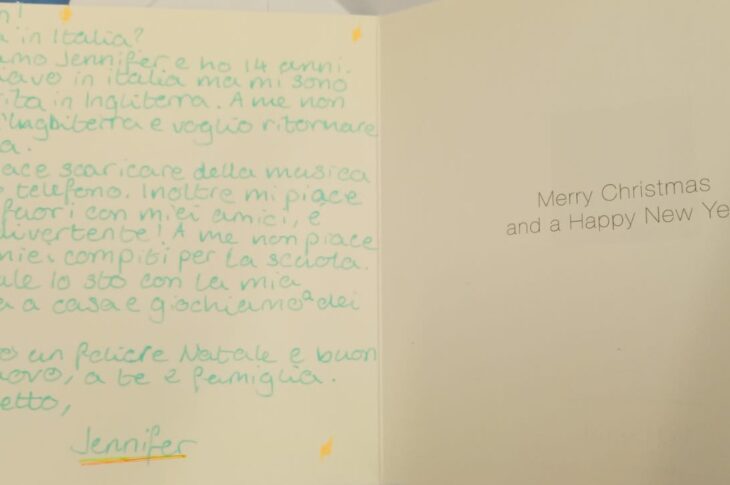 n!
a in Italia?
amo Jennifer e ho 14 anni.
iavo in italia ma mi sono
rita in Ingliterra. A me non
l'Ingbiterra e voglio ritornare
a.
ace scaricare della musica
o telefono. Inoltre mi piace
fuori con miei amici, e
divertente! A me non piace
miei compiti per la scuola.
ale lo sto con la mia
a a casa e giochiamo a dei
o un felicre Natale e buon
uovo, a te e famiglia.
etto,
Jennifer
Merry Christmas
and a Happy New Ye